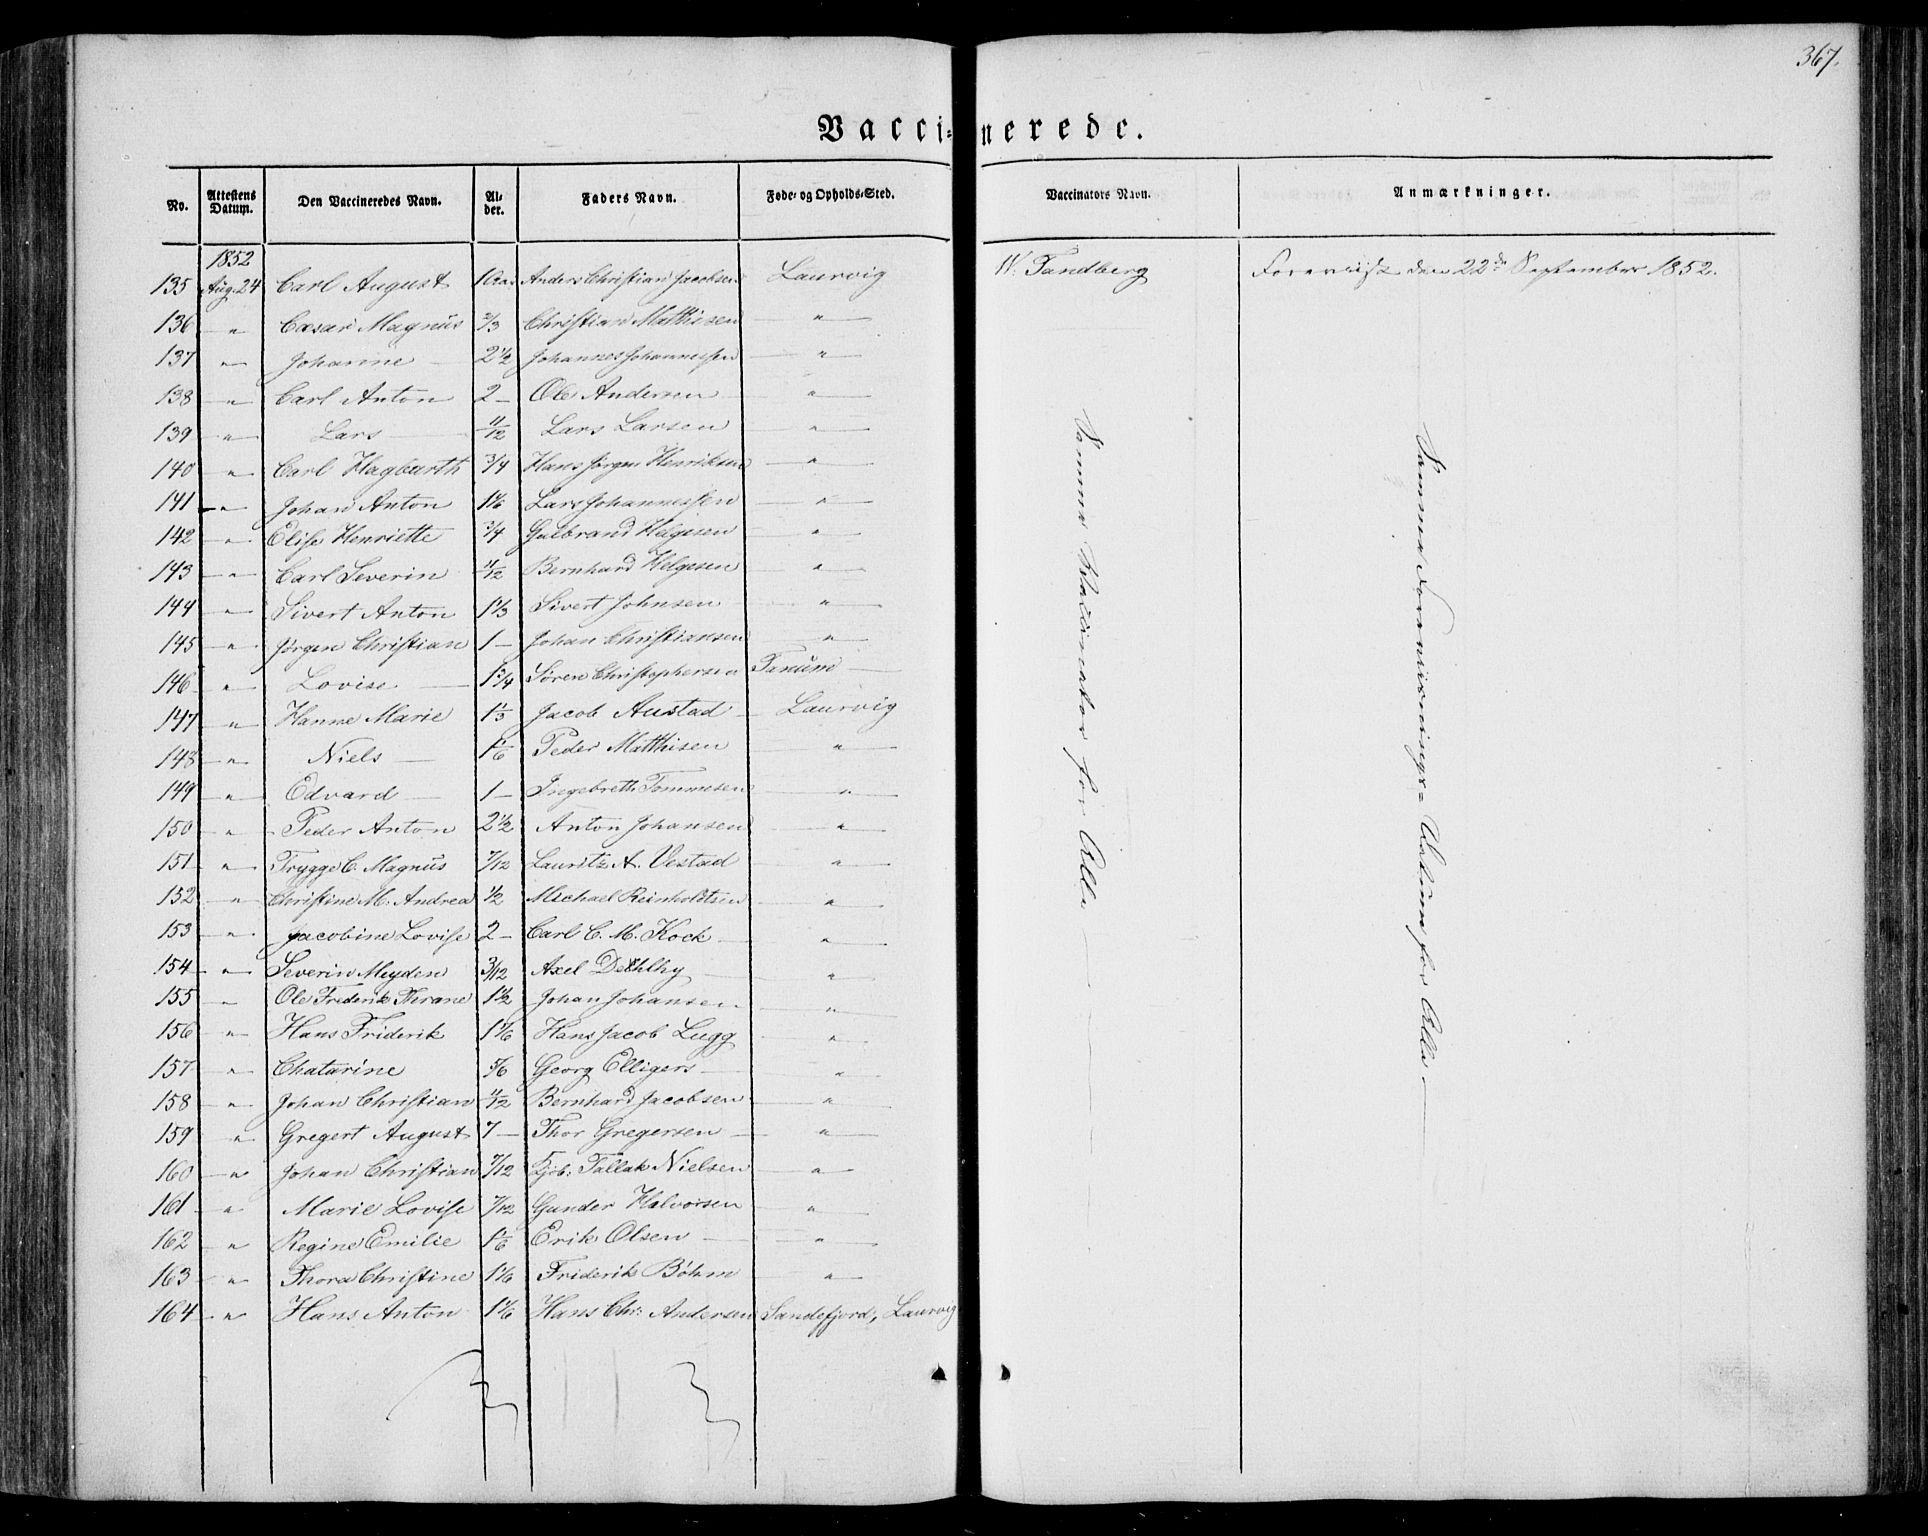 367.
Vaccinerede.
No. Attestens Datum. Den Vaccineredes Navn. Alder. Faders Navn. Føde- og Opholds-Sted. Vaccinators Navn. Anmærkninger.
1852
135 Aug. 24 Carl August 1 Aar Anders Christian Jacobsen Laurvig W. Tandberg Foreviist den 22de September 1852.
136 " Cæsar Magnus 2/3 Christian Mathisen "
137 " Johanne 2 1/2 Johannes Johannessen "
138 " Carl Anton 2 – Ole Andersen "
139 " Lars 11/12 Lars Larsen "
140 " Carl Hagbarth 3/4 Hans Jørgen Henriksen "
141 " Johan Anton 1 1/6 Lars Johannessen "
142 " Elise Henriette 3/4 Gulbrand Helgesen "
143 " Carl Severin 11/12 Bernhard Helgesen "
144 " Sivert Anton 1 1/3 Sivert Johnsen "
145 " Jørgen Christian 1 – Johan Christiansen "
146 " Lovise 1 3/4 Søren Christophersen Tanum
147 " Hanne Marie 1 1/3 Jacob Austad Laurvig
148 " Niels 1 1/6 Peder Matthisen "
149 " Edvard 1 – Ingebreth Tommesen "
150 " Peder Anton 2 1/2 Anton Johansen "
151 " Trygge C. Magnus 7/12 Lauritz A. Vestad "
152 " Christine M. Andrea 1/2 Michael Reinholdtsen "
153 " Jacobine Lovise 2 – Carl C. M. Kock "
154 " Severin Meyden 3/12 Axel "
155 " Ole Frederik Thrane 1 1/2 Johan Johansen "
156 " Hans Friderik 1 1/6 Hans Jacob Lugg "
157 " Chatarine 5/6 Georg Elligers "
158 " Johan Christian 11/12 Bernhard Jacobsen "
159 " Gregert August 7 – Thor Gregersen "
160 " Johan Christian 7/12 Kjøb: Tallak Nielsen "
161 " Marie Lovise 7/12 Gunder Halvorsen "
162 " Regine Emilie 1 1/6 Erik Olsen "
163 " Thora Christine 1 1/6 Friderik Bøhm "
164 " Hans Anton 1 1/6 Hans Chr: Andersen Sandefjord, Laurvig
Samme Vaccinator for Alle
Samme Foreviisnings- Datum for Alle